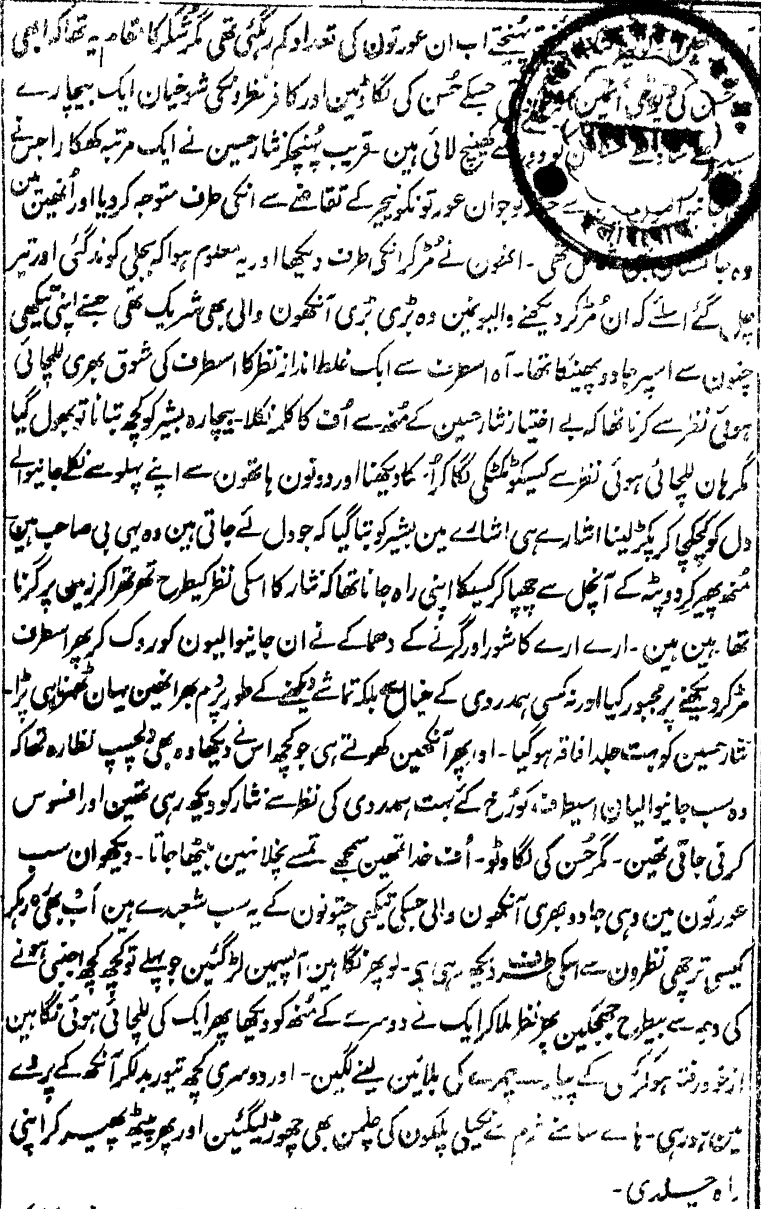 پہنچتے اب ان عورتون کی تعداد کم رہگئی تھی مگر شکر کا مقام یہ تھا کہ ابھی
حسن کی جسکے حُسن کی لگاوٹین اور کافر نظرونکی شوخیان ایک بیچارے
سیدھے سادے کھینچ لائی ہین ۔ قریب پُہنچکر نثار حسین نے ایک مرتبہ کھکارا جسنے
نوجوان عورتونکو نیچر کے تقاضے سے انکی طرف متوجہ کردیا اور اُنھین مین
وہ تھی ۔ اُنھون نے مُڑ کر انکی طرف دیکھا اور یہ معلوم ہوا کہ بجلی کوند گئی اور تیر
چل گئے اسلئے کہ ان مُڑ کر دیکھنے والیونمین وہ بڑی بڑی آنکھون والی بھی شریک تھی جسنے اپنی تیکھی
چتون سے اسپر جادو پھینکا تھا ۔ آہ اسطرف سے ایک غلط انداز نظر کا اسطرف کی شوق بھری للچائی
ہوئی نظر سے کرنا تھا کہ بے اختیار نثار حسین کے مُنھ سے اُف کا کلمہ نکلا ۔ بیچارہ بشیر کو کچھ بتانا تو بھول گیا
مگر ہان للچائی ہوئی نظر سے کسیکو ٹکٹکی لگا کر دیکھنا اور دونون ہاتھون سے اپنے پہلو سے نکلے جانیوالے
دل کو کچکچا کر پکڑ لینا اشارے ہی اشارے مین بشیر کو بتا گیا کہ جو دل لئے جاتی ہین وہ یہی بی صاحب ہین
مُنھ پھیر کر دوپٹہ کے آنچل سے چھپا کر کسیکا اپنی راہ جانا تھا کہ نثار کا اسکی نظر کیطرح تھرتھرا کر زمین پر گرنا
تھا ہین ہین ۔ ارے ارے کا شور اور گرنے کے دھماکے نے ان جانیوالیون کو روک کر پھر اسطرف
مڑ کر دیکھنے پر مجبور کیا اور نہ کسی ہمدردی کے خیال سے بلکہ تماشے دیکھنے کے طور پر دم بھر انھین یہان ٹھہرنا ہی پڑا ۔
نثار حسین کو بہت جلد افاقہ ہوگیا ۔ اور پھر آنکھین کھولتے ہی جو کچھ اس نے دیکھا وہ بھی دلچسپ نظارہ تھا کہ
وہ سب جانیوالیان اسیطرف کو رُخ کئے بہت ہمدردی کی نظر سے نثار کو دیکھ رہی تھین اور افسوس
کرتی جاتی تھین ۔ مگر حُسن کی لگاوٹو ۔ اُف خدا تمھین سمجھے تمسے نچلا نہین بیٹھا جاتا ۔ دیکھو ان سب
عورتون مین وہی جادو بھری آنکھون والی جسکی تیکھی چتونون کے یہ سب شعبدے ہین اب بھی رہ رہکر
کیسی ترچھی نظرون سے اسکی طرف دیکھ رہی ہے ۔ لو پھر نگاہین آپسمین لڑ گئین جو پہلے تو کچھ کچھ اجنبی ہونے
کی وجہ سے بیطرح جھجکین پھر نظر ملا کر ایک نے دوسرے کے مُنھ کو دیکھا پھر ایک کی للچائی ہوئی نگاہین
از خود رفتہ ہوکر کسی کے پیارے چہرے کی بلائین لینے لگین ۔ اور دوسری کچھ تیور بدلکر آنکھ کے پردے
مین ہو رہی ۔ ہائے سامنے شرم نے نکیلی پلکون کی چلمن بھی چھوڑ لیگئین اور پھر پیٹھ پھیر کر اپنی
راہ چلدی ۔